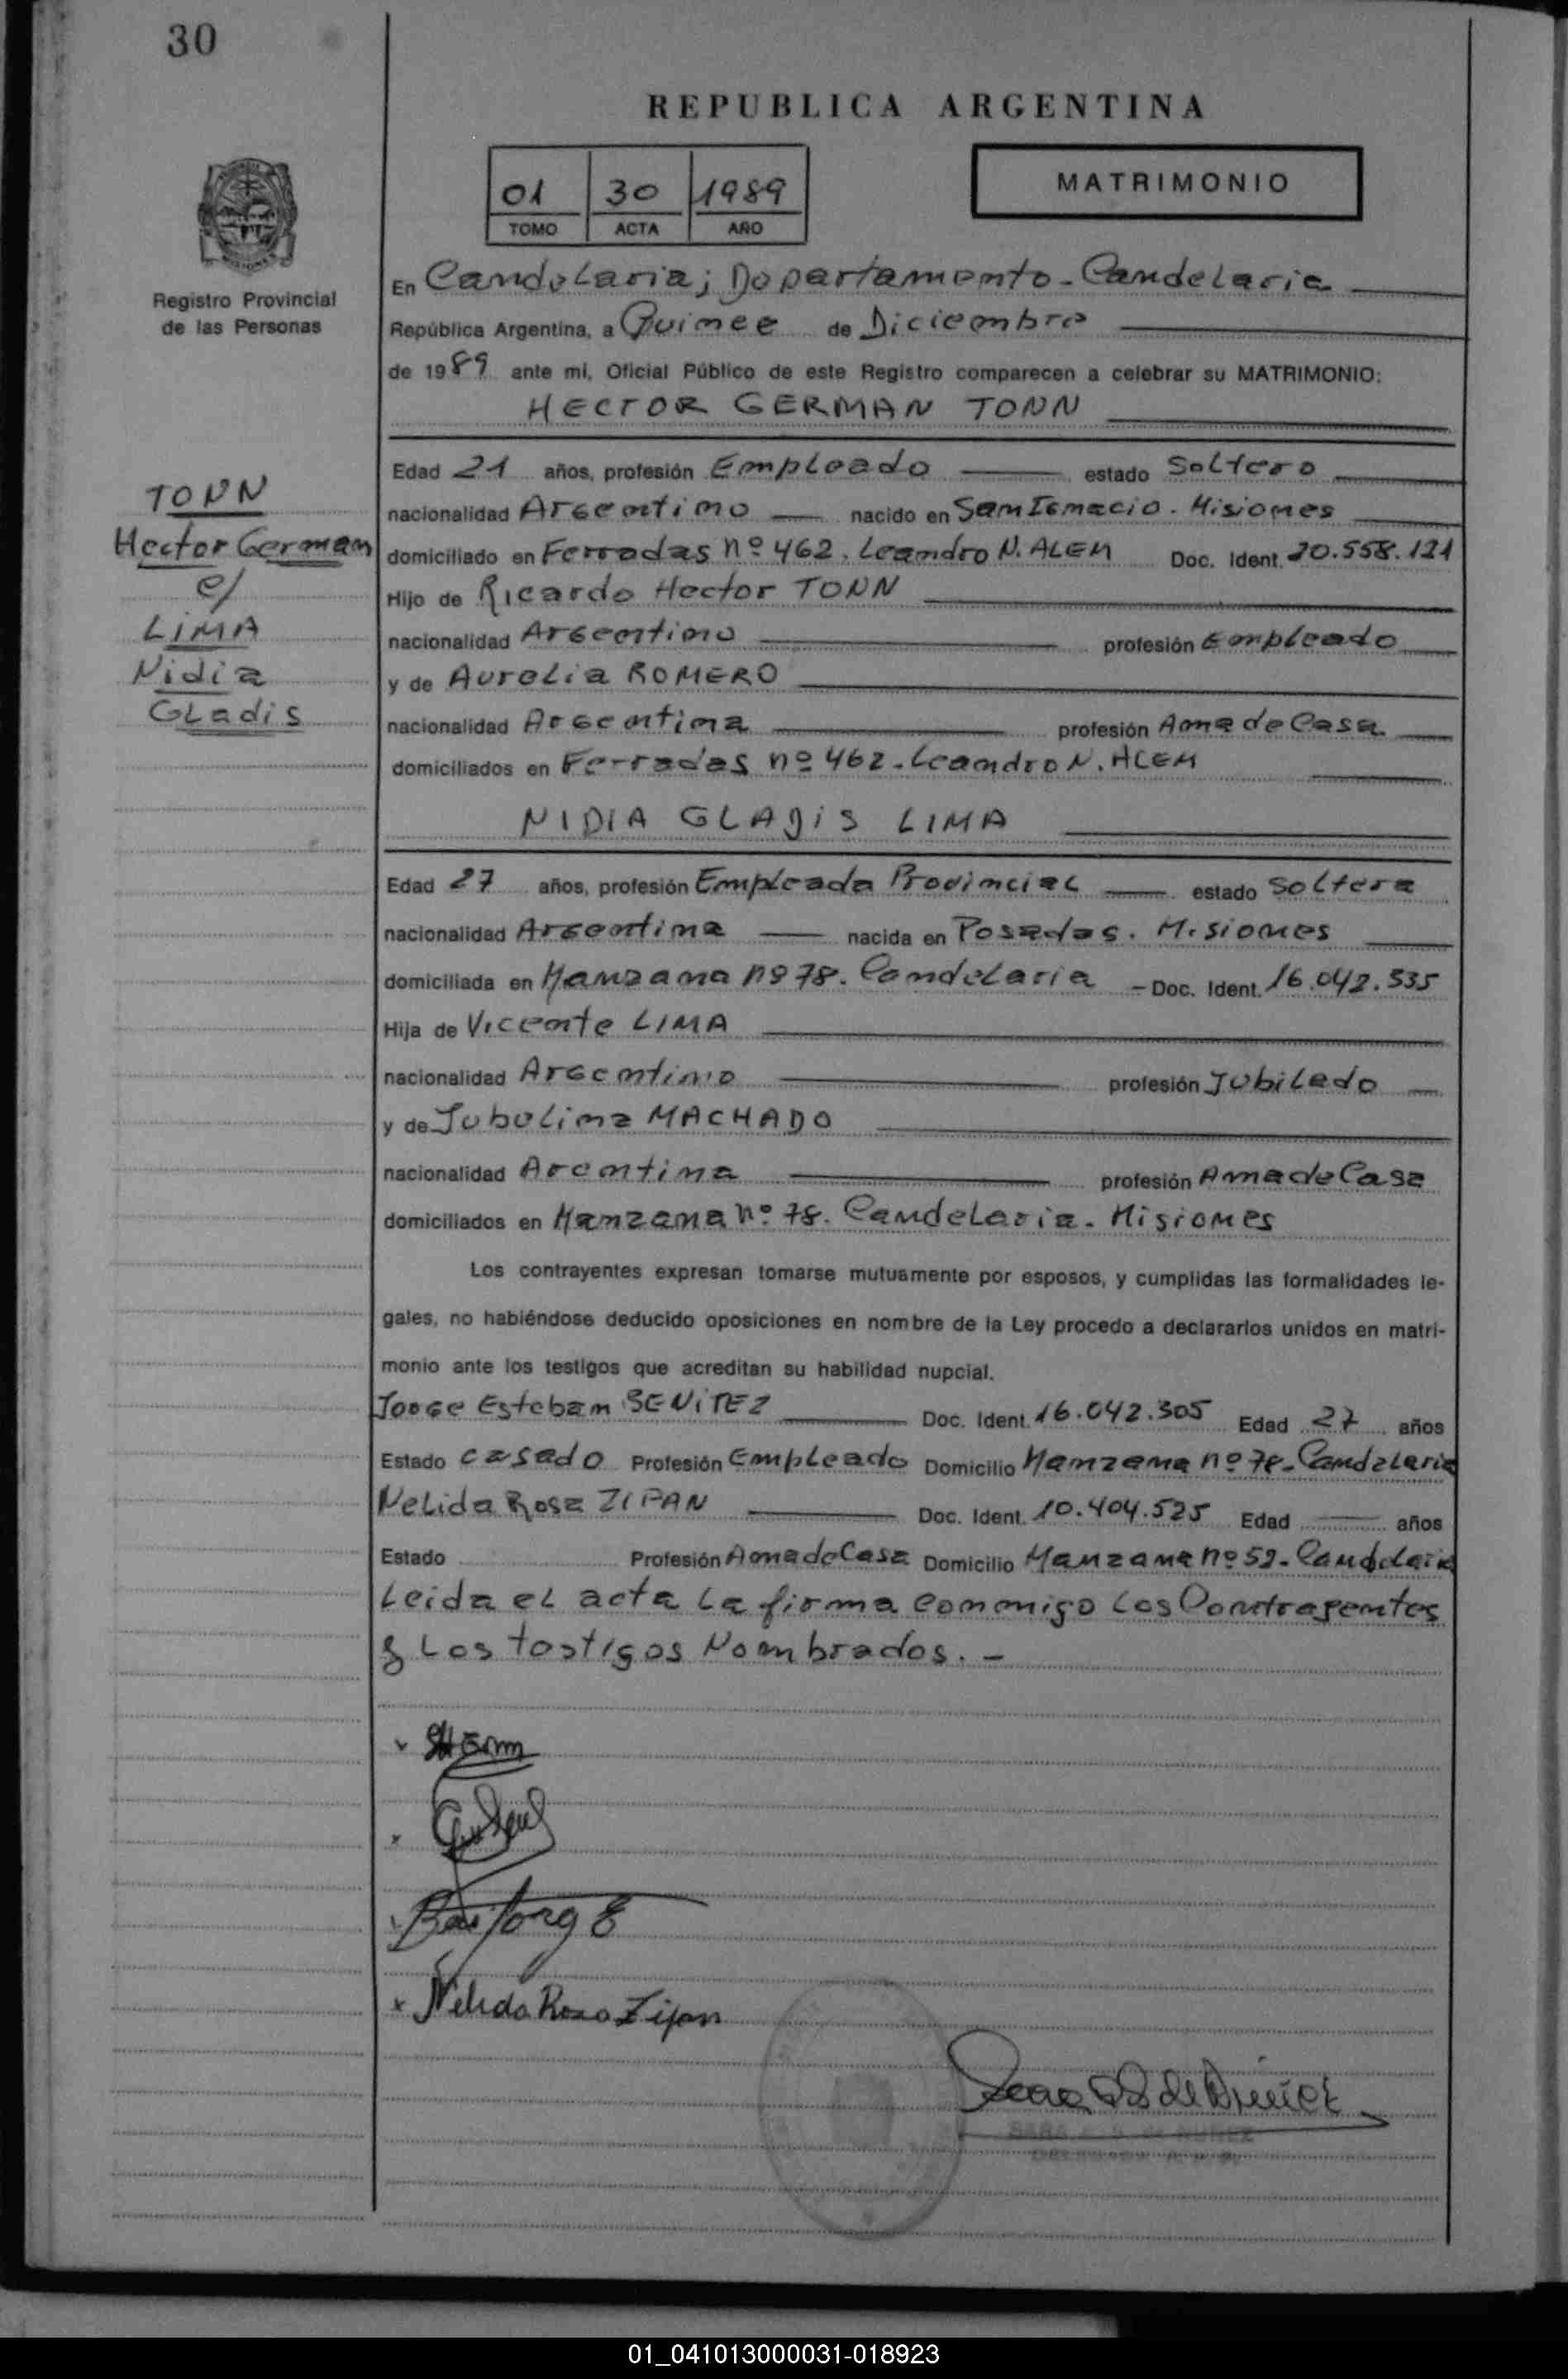 30
REPUBLICA ARGENTINA
01 30 1989
TOMO ACTA AÑO
MATRIMONIO
Registro Provincial
de las Personas
En Candelaria; Departamento - Candelaria
República Argentina, a Quince de Diciembre
de 1989 ante mi, Oficial Público de este Registro comparecen a celebrar su MATRIMONIO:
HECTOR GERMAN TONN
TONN
Hector German
c/
LIMA
Nidia
GLadis
Edad 21 años, profesión Empleado estado Soltero
nacionalidad Argentino nacido en San Ignacio. Misiones
domiciliado en Ferradas nº 462. Leandro N. ALEM Doc. Ident. 20.558.121
Hijo de Ricardo Hector TONN
nacionalidad Argentino profesión Empleado
y de Aurelia ROMERO
nacionalidad Argentina profesión Ama de Casa
domiciliados en Ferradas nº 462. Leandro N. ALEM
NIDIA GLADIS LIMA
Edad 27 años, profesión Empleada Provincial estado Soltera
nacionalidad Argentina nacida en Posadas. Misiones
domiciliada en Manzana nº 78. Candelaria - Doc. Ident. 16.042.535
Hija de Vicente LIMA
nacionalidad Argentino profesión Jubilado
y de Jubelina MACHADO
nacionalidad Arentina profesión Ama de Casa
domiciliados en Manzana nº 78. Candelaria. Misiones
Los contrayentes expresan tomarse mutuamente por esposos, y cumplidas las formalidades le-
gales, no habiéndose deducido oposiciones en nombre de la Ley procedo a declararlos unidos en matri-
monio ante los testigos que acreditan su habilidad nupcial.
Jorge Esteban BENITEZ Doc. Ident. 16.042.305 Edad 27 años
Estado casado Profesión Empleado Domicilio Manzana nº 78- Candelaria
Nelida Rosa ZIPAN Doc. Ident. 10.404.525 Edad años
Estado Profesión Ama de Casa Domicilio Manzana nº 52- Candelaria
Leida el acta la firma conmigo los Contrayentes
y los testigos Nombrados. -
x Nelida Rosa Zipan
01_041013000031-018923